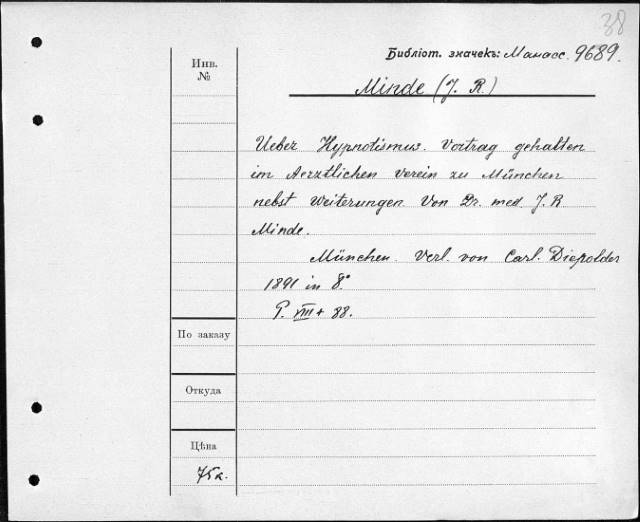 38
Библіот. значекъ: Манасс. 9689.
Инв.
№
Minde (J. R.)
Ueber Hypnotismus. Vortrag gehalten
im Aerztlichen Verein zu München
nebst Weiterungen. Von Dr. med. J. R
Minde.
München. Verl. von Carl. Diepolder
1891 in 8.°
P. VIII + 88.
По заказу
Откуда
Цѣна
75к.